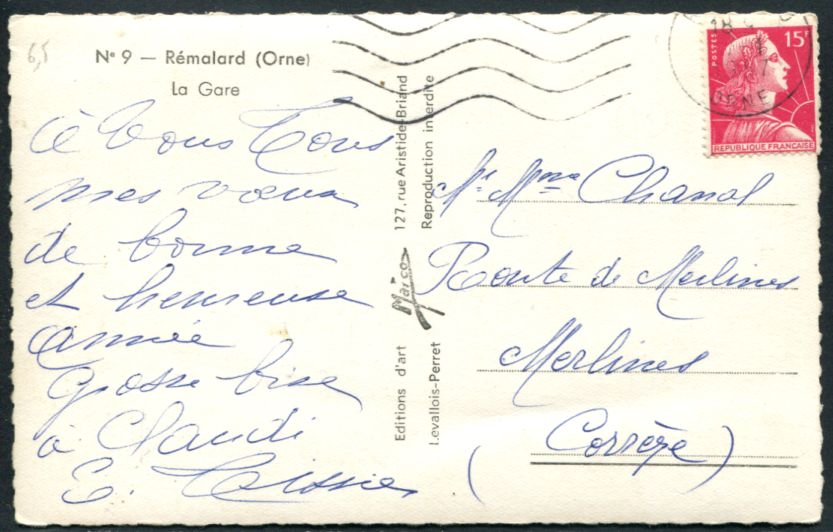 6,5
N° 9 — Rémalard (Orne)
La Gare
à vous Tous
mes vœux
de bonne
et heureuse
année
Grosse bise
à Claudi
E.
Editions d'art Marco 127, rue Aristide-Briand
Levallois-Perret Reproduction interdite
18
ORNE
POSTES
15F
REPUBLIQUE FRANÇAISE
Mr Mme Chanal
Route de Merlines
Merlines
(Corrèze)